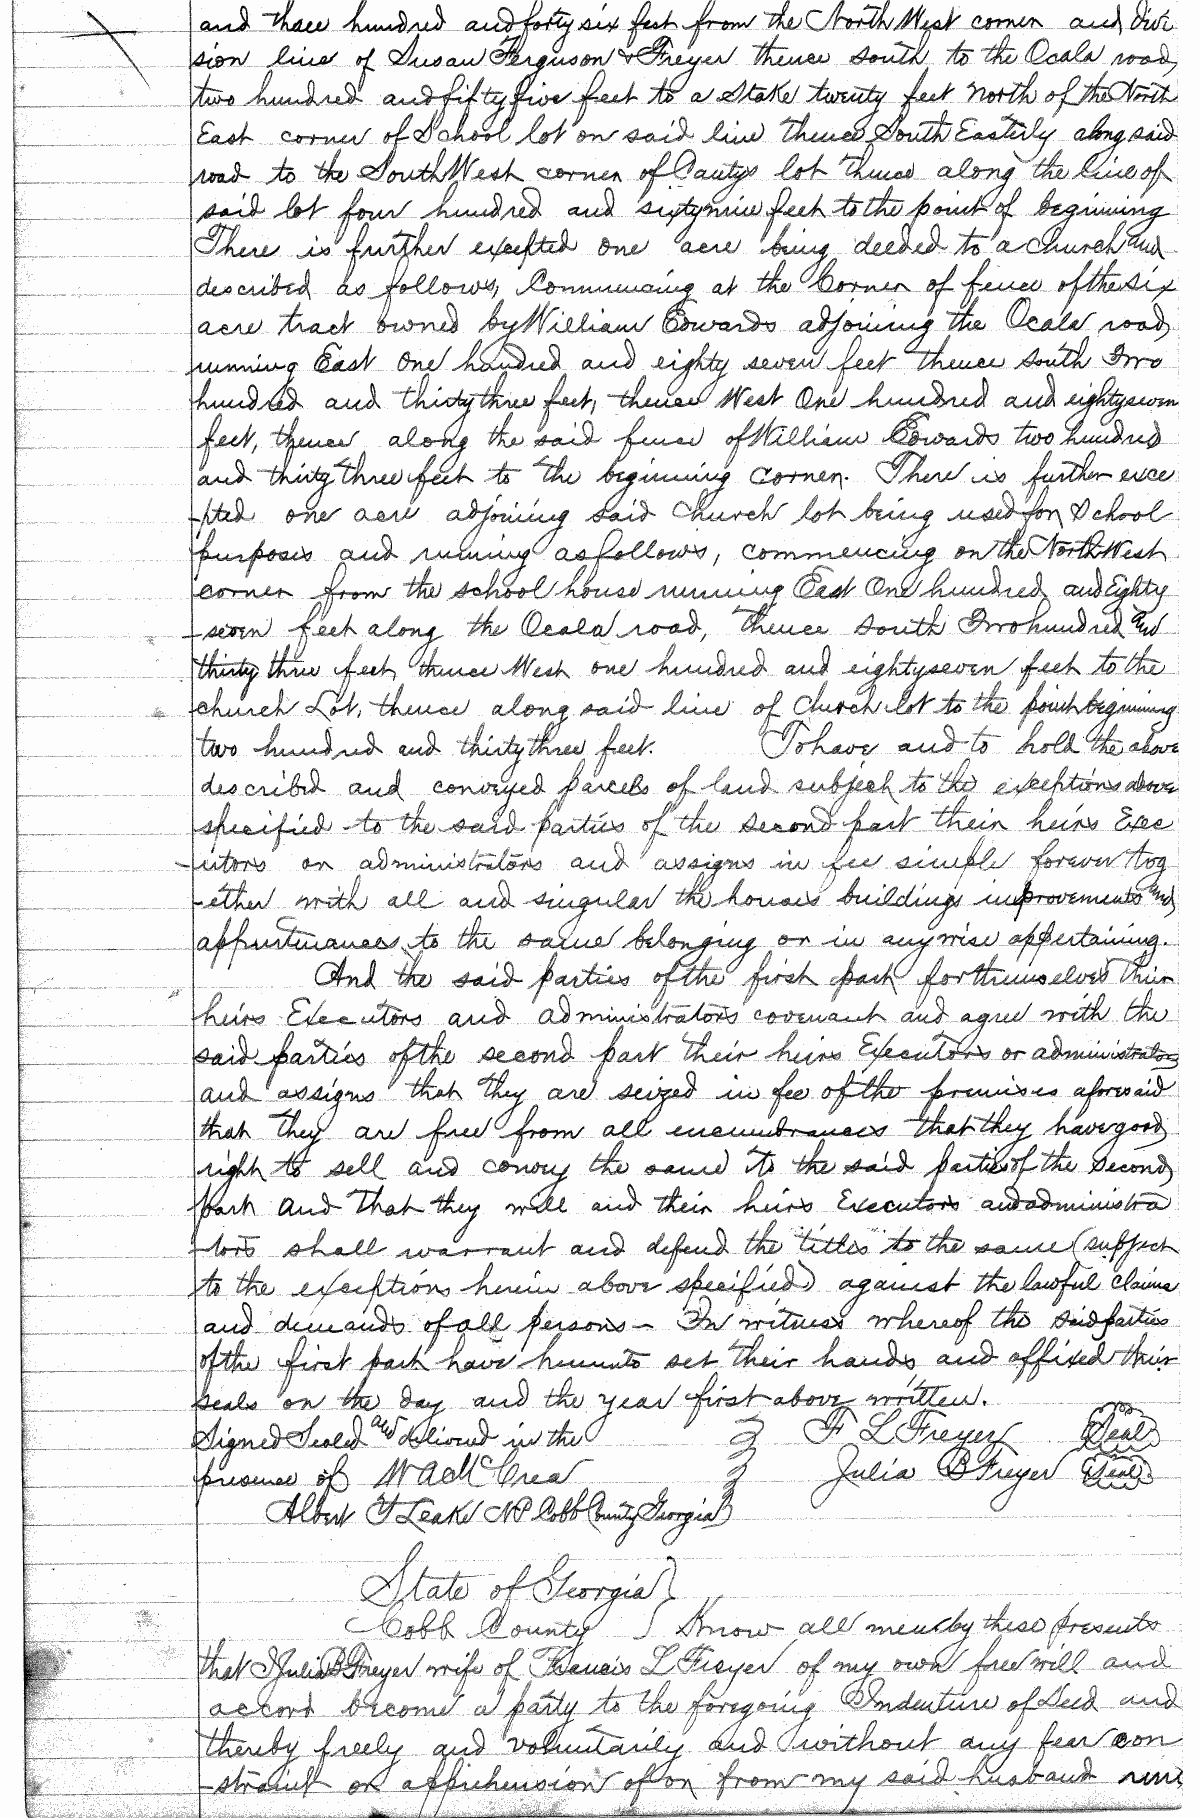 and three hundred and forty six feet from the North West corner and divi
sion line of Susan Ferguson & Freyer thence south to the Ocala road,
two hundred and fifty five feet to a Stake twenty feet north of the North
East corner of School lot on said line thence South Easterly along said
road to the South West corner of Cautys lot thence along the line of
said lot four hundred and sixty nine feet to the point of beginning
There is further excepted one acre being deeded to a church and
described as follows, Commencing at the Corner of fence of the six
acre tract owned by William Edwards adjoining the Ocala road,
running East One hundred and eighty seven feet thence south Two
hundred and thirty three feet, thence West One hundred and eighty seven
feet, thence along the said fence of William Edwards two hundred
and thirty three feet to the beginning corner. There is further exce
-pted one acre adjoining said church lot being used for School
purposes and running as follows, commencing on the North West
corner from the school house running East One hundred and Eighty
-seven feet along the Ocala road, thence south Two hundred and
thirty three feet, thence West one hundred and eighty seven feet to the
church Lot, thence along said line of Church lot to the point beginning
two hundred and thirty three feet. To have and to hold the above
described and conveyed parcels of land subject to the exceptions above
specified to the said parties of the second part their heirs Exec
-utors or administrators and assigns in fee simple forever tog
-ether with all and singular the houses buildings improvements and
appurtinances to the same belonging or in anywise appertaining.
And the said parties of the first part for themselves their
heirs Executors and administrators covenant and agree with the
said parties of the second part their heirs Executors or administrators
and assigns that they are seized in fee of the premises aforesaid
that they are free from all encumbrances that they have good
right to sell and convey the same to the said parties of the second
part and that they will and their heirs Executors and administra
-tors shall warrant and defend the titles to the same (subject
to the exceptions herein above specified) against the lawful claims
and demands of all persons— In witness whereof the said parties
of the first part have hereunto set their hands and affixed their
seals on the day and the year first above written.
Signed Sealed and delivered in the F L Freyer Seal
presence of W A McCrea Julia B Freyer Seal
Albert Y Leake NP Cobb County Georgia
State of Georgia }
Cobb County } Know all men by these presents
that I Julia B Freyer wife of Francis L Freyer of my own free will and
accord become a party to the foregoing Indenture of Deed and
thereby freely and voluntarily and without any fear con
-straint or apprehension of or from my said husband